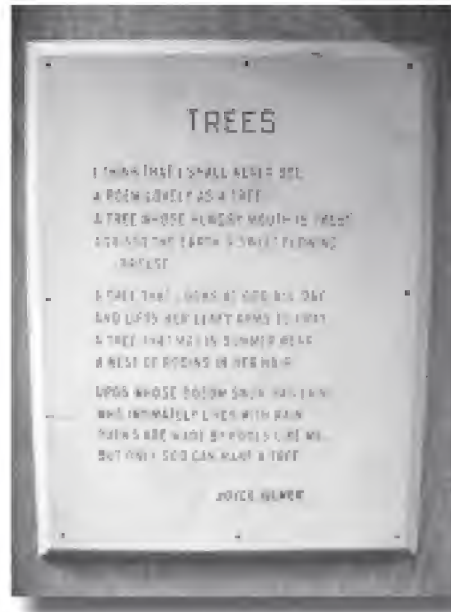 TREES
I THINK THAT I SHALL NEVER SEE
A POEM LOVELY AS A TREE
A TREE WHOSE HUNGRY MOUTH IS PREST
AGAINST THE EARTH'S SWEET FLOWING
BREAST
A TREE THAT LOOKS AT GOD ALL DAY
AND LIFTS HER LEAFY ARMS TO PRAY
A TREE THAT MAY IN SUMMER WEAR
A NEST OF ROBINS IN HER HAIR
UPON WHOSE BOSOM SNOW HAS LAIN
WHO INTIMATELY LIVES WITH RAIN
POEMS ARE MADE BY FOOLS LIKE ME
BUT ONLY GOD CAN MAKE A TREE
JOYCE KILMER